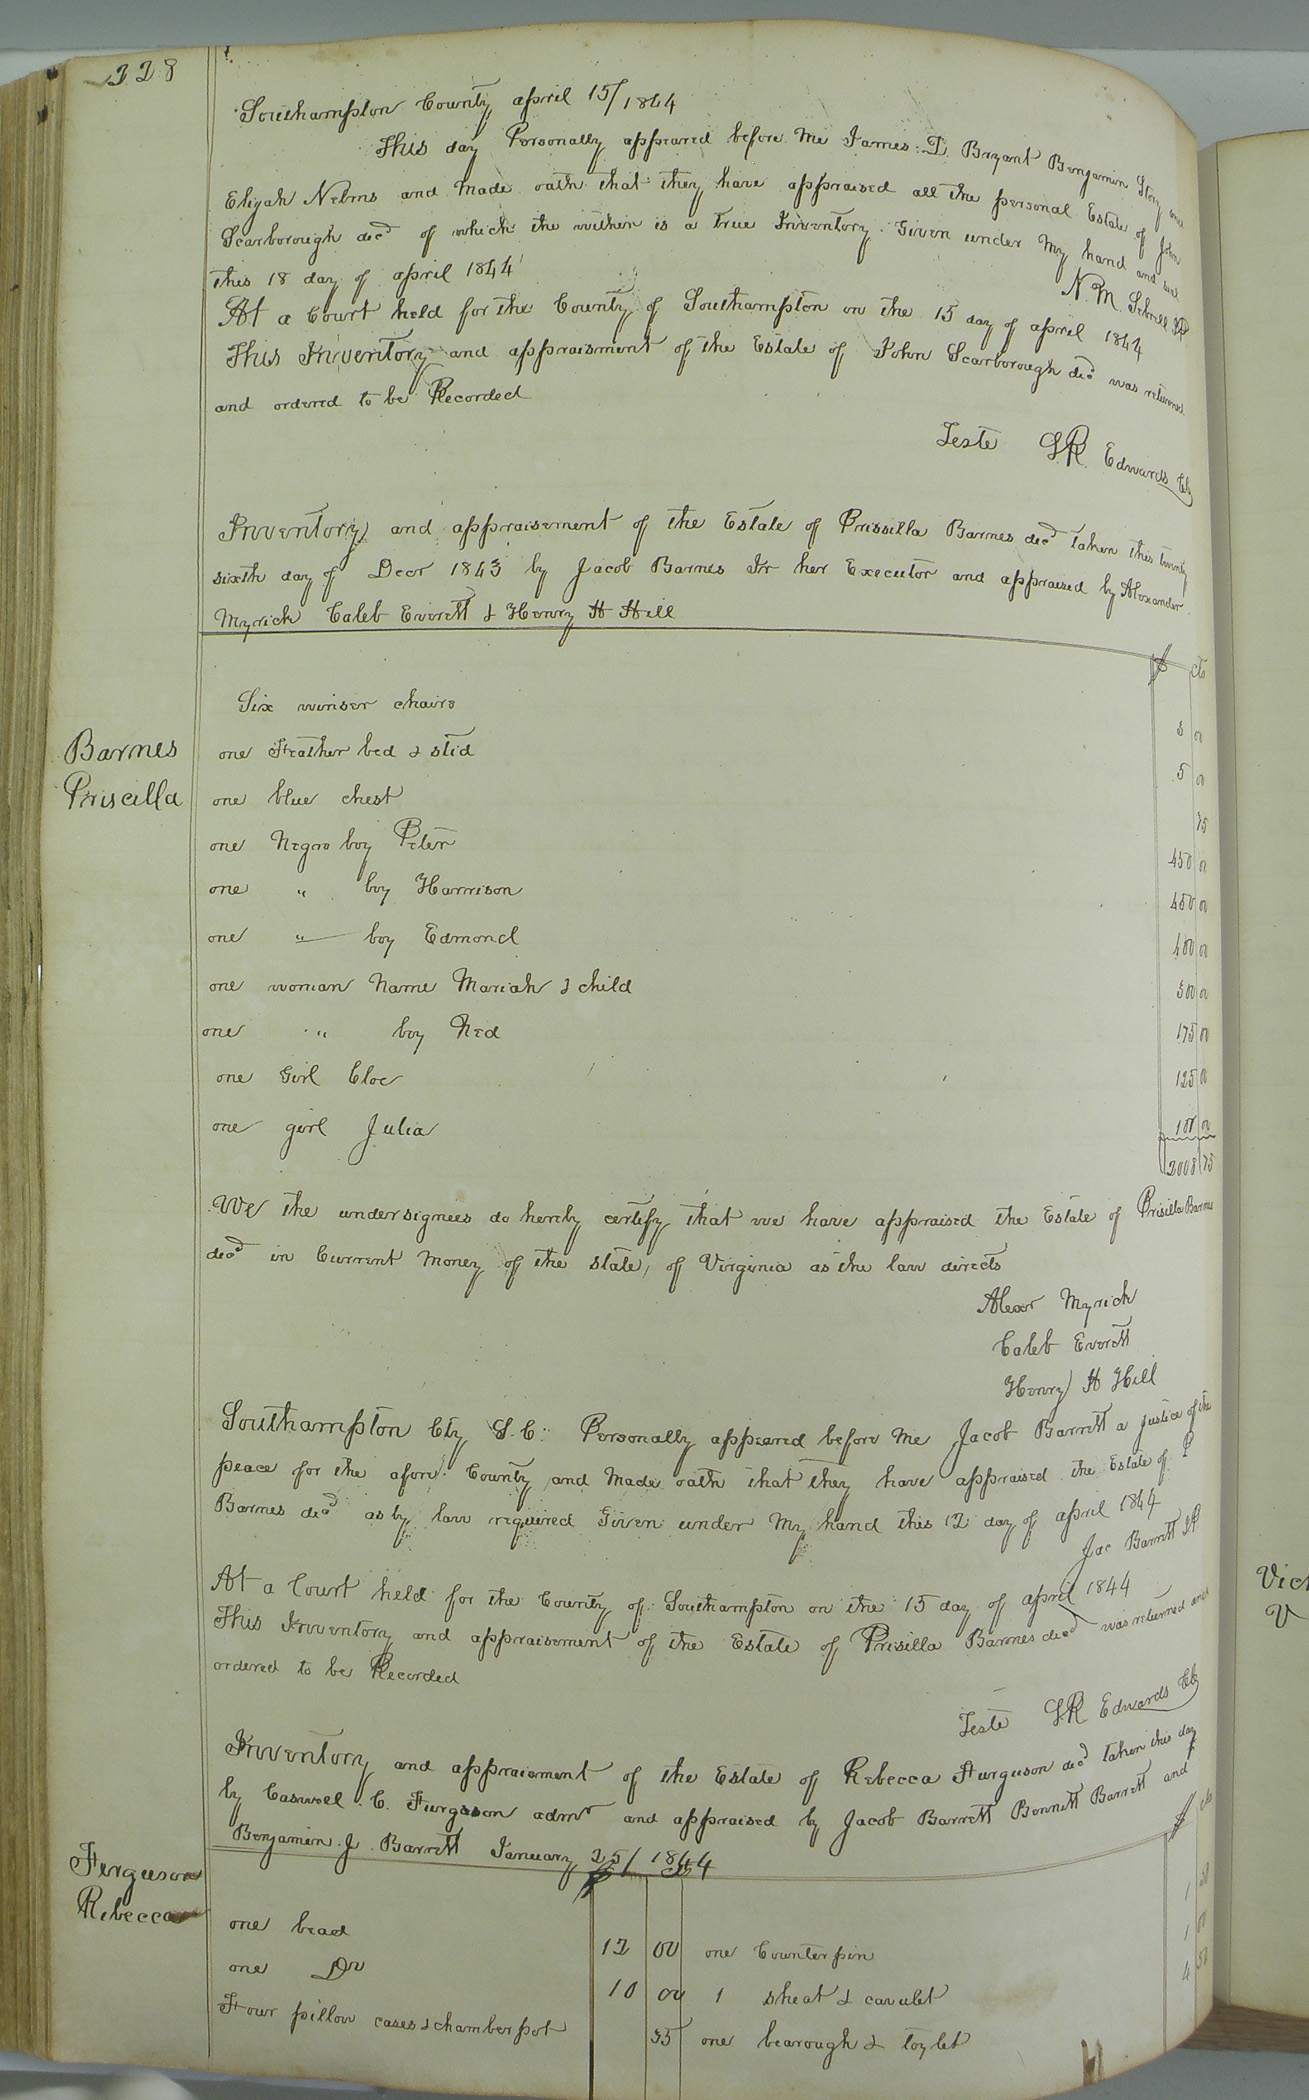 228
Southampton County april 15/1844
This day Personally appeared before Me James D. Bryant Benjamin Story and
Elijah Nelms and Made oath that they have appraised all the personal Estate of John
Scarborough decd of which the within is a true Inventory. Given under My hand and seal
this 18 day of april 1844
N. M. Sebrell JP
At a Court held for the County of Southampton on the 15 day of april 1844
This Inventory and appraisment of the Estate of John Scarborough decd was returned
and ordered to be Recorded
Teste LR. Edwards Clk
Inventory and appraisement of the Estate of Prissilla Barnes decd taken this twenty
sixth day of Decr 1843 by Jacob Barnes Jr her Executor and appraised by Alexander
Myrick Caleb Everett & Henry H Hill
$ cts
Six winser chairs 3 00
Barnes
Priscilla
one Feather bed & stid 5 00
one blue chest 75
one Negro boy Peter 450 00
one " boy Harrison 450 00
one " boy Edmond 400 00
one woman Name Mariah & child 300 00
one " boy Ned 175 00
one Girl Cloe 125 00
one girl Julia 100 00
2008 75
We the undersignees do hereby certify that we have appraised the Estate of Prisilla Barnes
decd in Current Money of the state, of Virginia as the law directs
Alexr Myrick
Caleb Everett
Henry H Hill
Southampton Cty S.C: Personally appeared before Me Jacob Barrett a justice of the
peace for the afore County and Made oath that they have appraised the Estate of P
Barnes decd as by law required Given under My hand this 12 day of april 1844
Jac Barrett JP
At a Court held for the County of Southampton on the 15 day of april 1844
This Inventory and appraisement of the Estate of Prisilla Barnes decd was returned and
ordered to be Recorded
Teste LR Edwards Clk
Inventory and appraisment of the Estate of Rebecca Furguson decd taken this day
by Caswell C. Furgason admr and appraised by Jacob Barrett Bennett Barrett and
Benjamin J. Barrett January 25/ 1844
$ cts
Ferguson
Rebecca
$ cts
one bead 12 00 one Counterpin 1 50
one Do 10 00 1 sheat & cavulet 1 00
Four pillow cases & chamber pot 35 one bearough & toylet 4 50
Vict
V